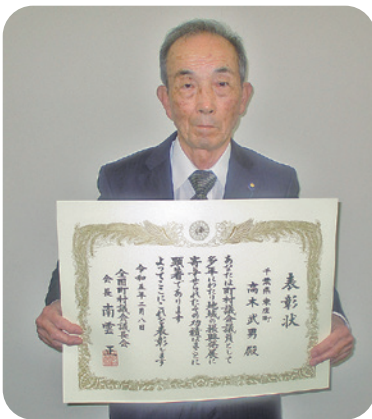 表彰状
千葉県東庄町
高木武男 殿
あなたは町村議会議員として
多年にわたり地域の振興発展に
寄与せられたその功績はまことに
顕著であります
よってここにこれを表彰します
令和五年二月八日
全国町村議会議長会
会長 南雲 正